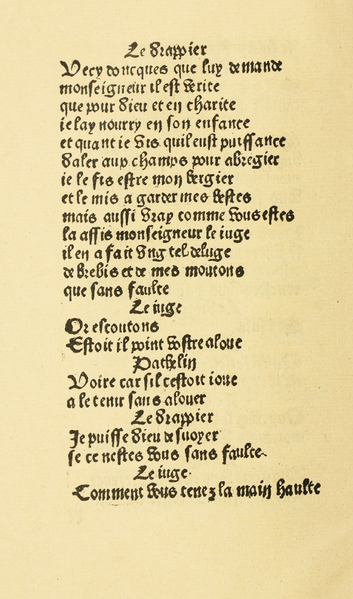 Le drappier
Vecy doncques que luy demande
monseigneur il est verite
que pour dieu et en charite
ie lay nourry en son enfance
et quant ie vis quil eust puissance
daler aup champs pour abregier
ie le fis estre mon bergier
et le mis a garder mes bestes
mais aussi vray comme vous estes
la assis monseigneur le iuge
il en a fait vng tel deluge
de brebis et de mes moutons
que sans faulte
Le iuge
Or escoutons
Estoit il point vostre aloue
Pathelin
Voire car sil cestoit ioue
a le tenir sans alouer
Le drappier
Je puisse dieu desuoyer
se ce nestes vous sans faulte.
Le iuge.
Comment vous tenez la main haulte